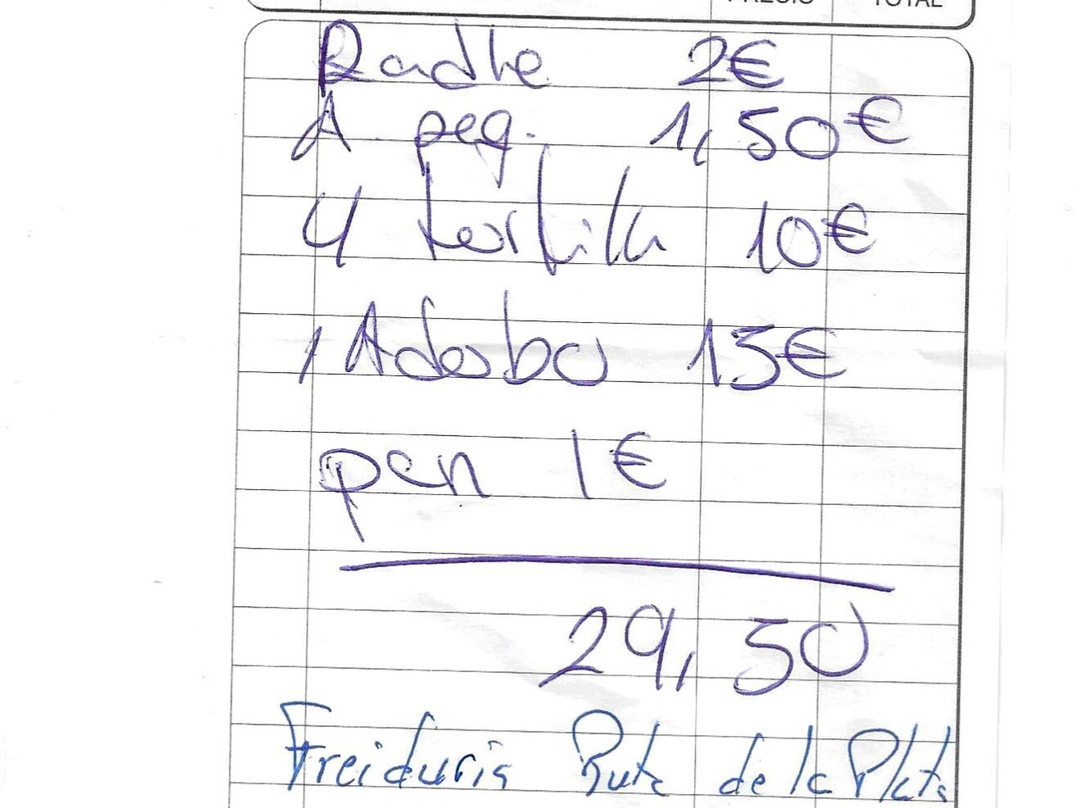 PRECIO TOTAL
Radle 2€
A peq. 1,50€
4 tortilla 10€
1 Adobo 15€
pan 1€
29,50
Freiduria Ruta de la Plata